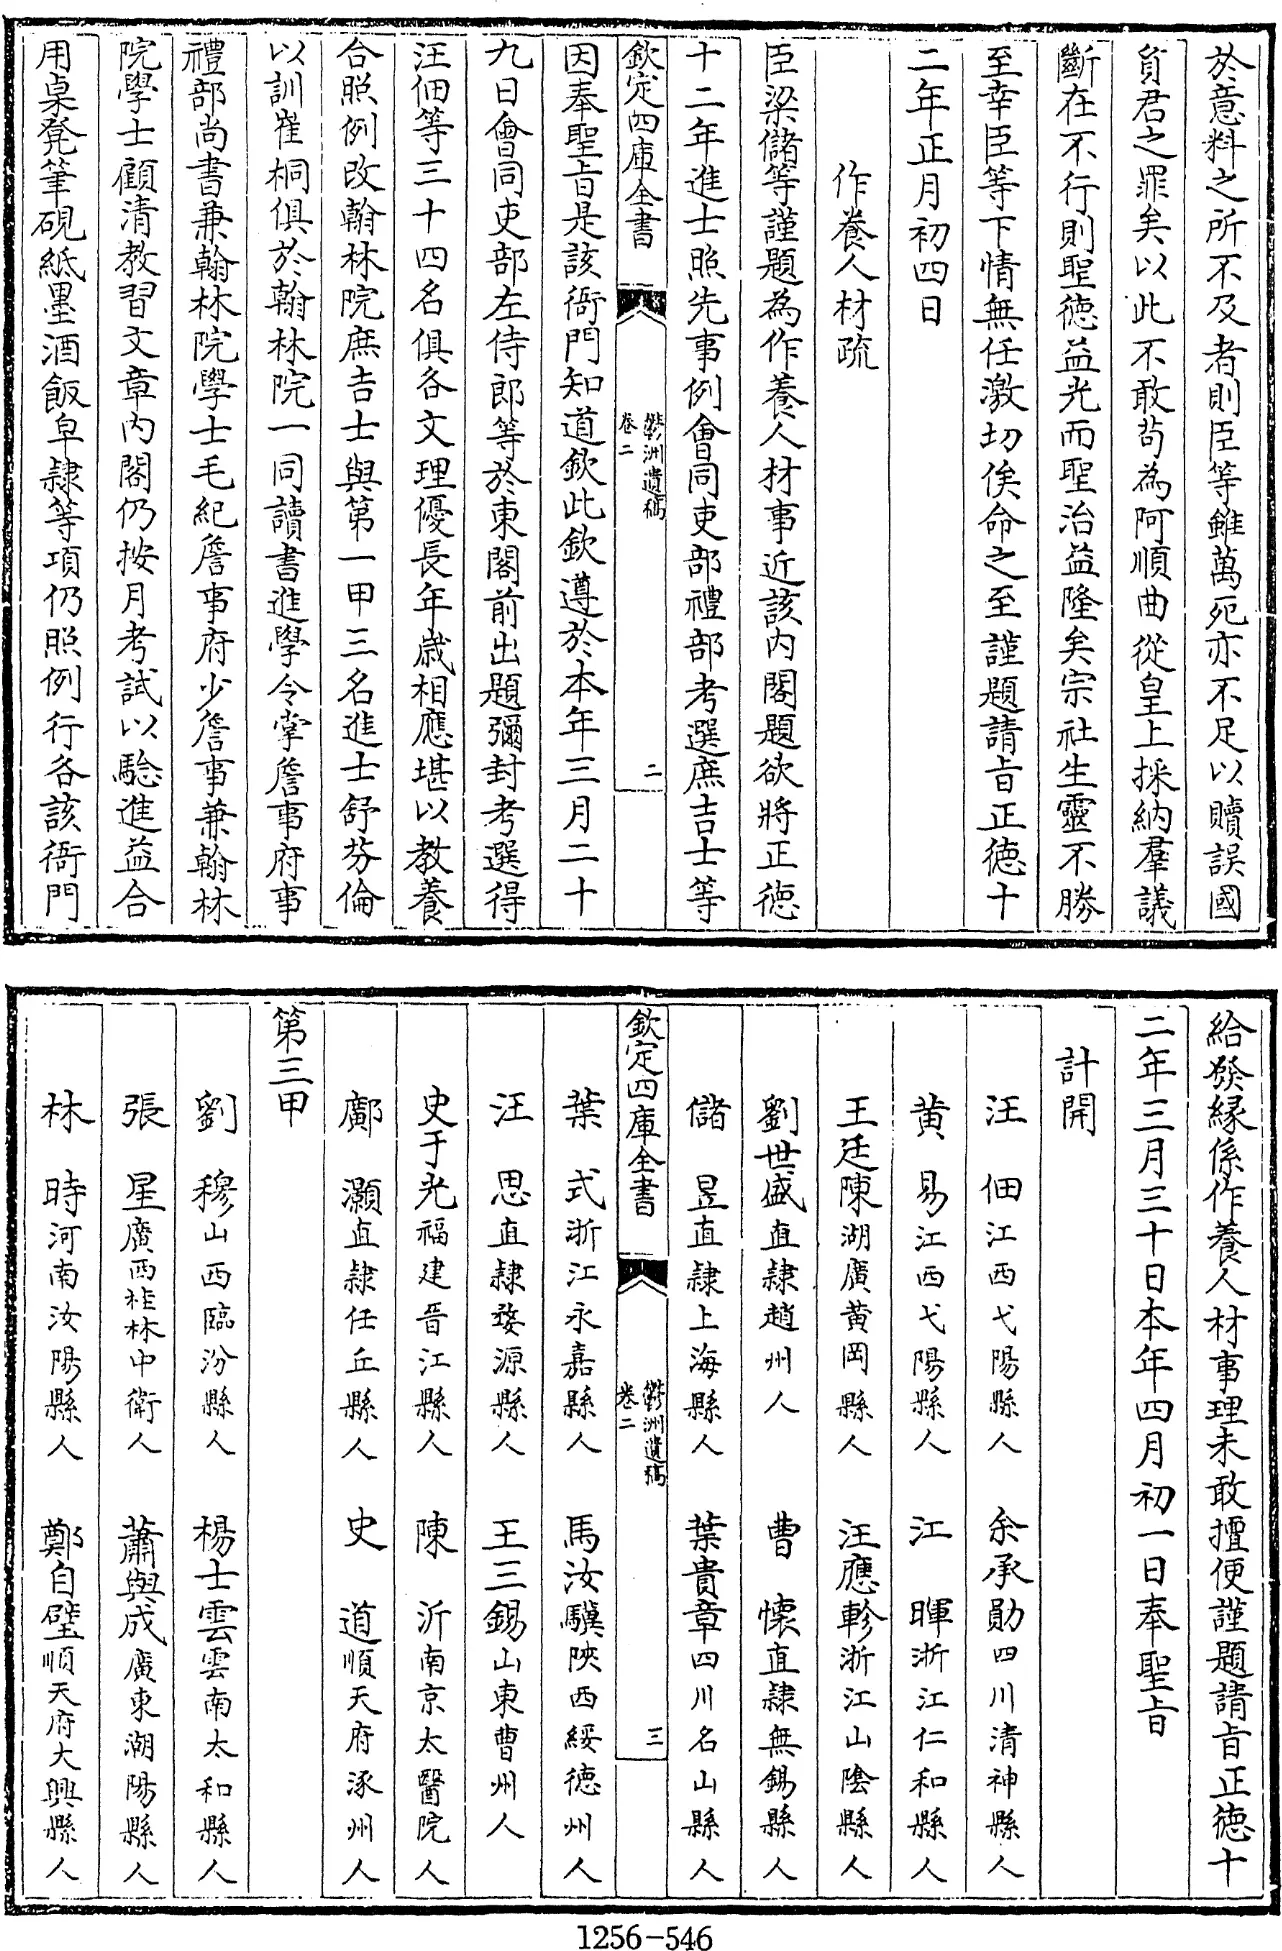 於意料之所不及者則臣等雖萬死亦不足以贖誤國
負君之罪矣以此不敢苟為阿順曲從皇上採納羣議
斷在不行則聖德益光而聖治益隆矣宗社生靈不勝
至幸臣等下情無任激切俟命之至謹題請旨正德十
二年正月初四日
作養人材疏
臣梁儲等謹題為作養人材事近該內閣題欲將正德
十二年進士照先事例會同吏部禮部考選庶吉士等
欽定四庫全書
鬱洲遺稿
卷二
二
因奉聖旨是該衙門知道欽此欽遵於本年三月二十
九日會同吏部左侍郎等於東閣前出題彌封考選得
汪佃等三十四名俱各文理優長年歲相應堪以教養
合照例改翰林院庶吉士與第一甲三名進士舒芬倫
以訓崔桐俱於翰林院一同讀書進學令掌詹事府事
禮部尚書兼翰林院學士毛紀詹事府少詹事兼翰林
院學士顧清教習文章內閣仍按月考試以驗進益合
用桌凳筆硯紙墨酒飯皁隸等項仍照例行各該衙門
給發縁係作養人材事理未敢擅便謹題請旨正德十
二年三月三十日本年四月初一日奉聖旨
計開
汪佃江西弋陽縣人 余承勛四川清神縣人
黄易江西弋陽縣人 江暉浙江仁和縣人
王廷陳湖廣黄岡縣人 汪應軫浙江山陰縣人
劉世盛直隸趙州人 曹懷直隸無錫縣人
儲昱直隸上海縣人 葉貴章四川名山縣人
欽定四庫全書
鬱洲遺稿
卷二
三
葉式浙江永嘉縣人 馬汝驥陜西綏德州人
汪思直隸婺源縣人 王三錫山東曹州人
史于光福建晉江縣人 陳沂南京太醫院人
鄺灝直隸任丘縣人 史道順天府涿州人
第三甲
劉穆山西臨汾縣人 楊士雲雲南太和縣人
張星廣西桂林中衛人 蕭與成廣東潮陽縣人
林時河南汝陽縣人 鄭自璧順天府大興縣人
1256-546